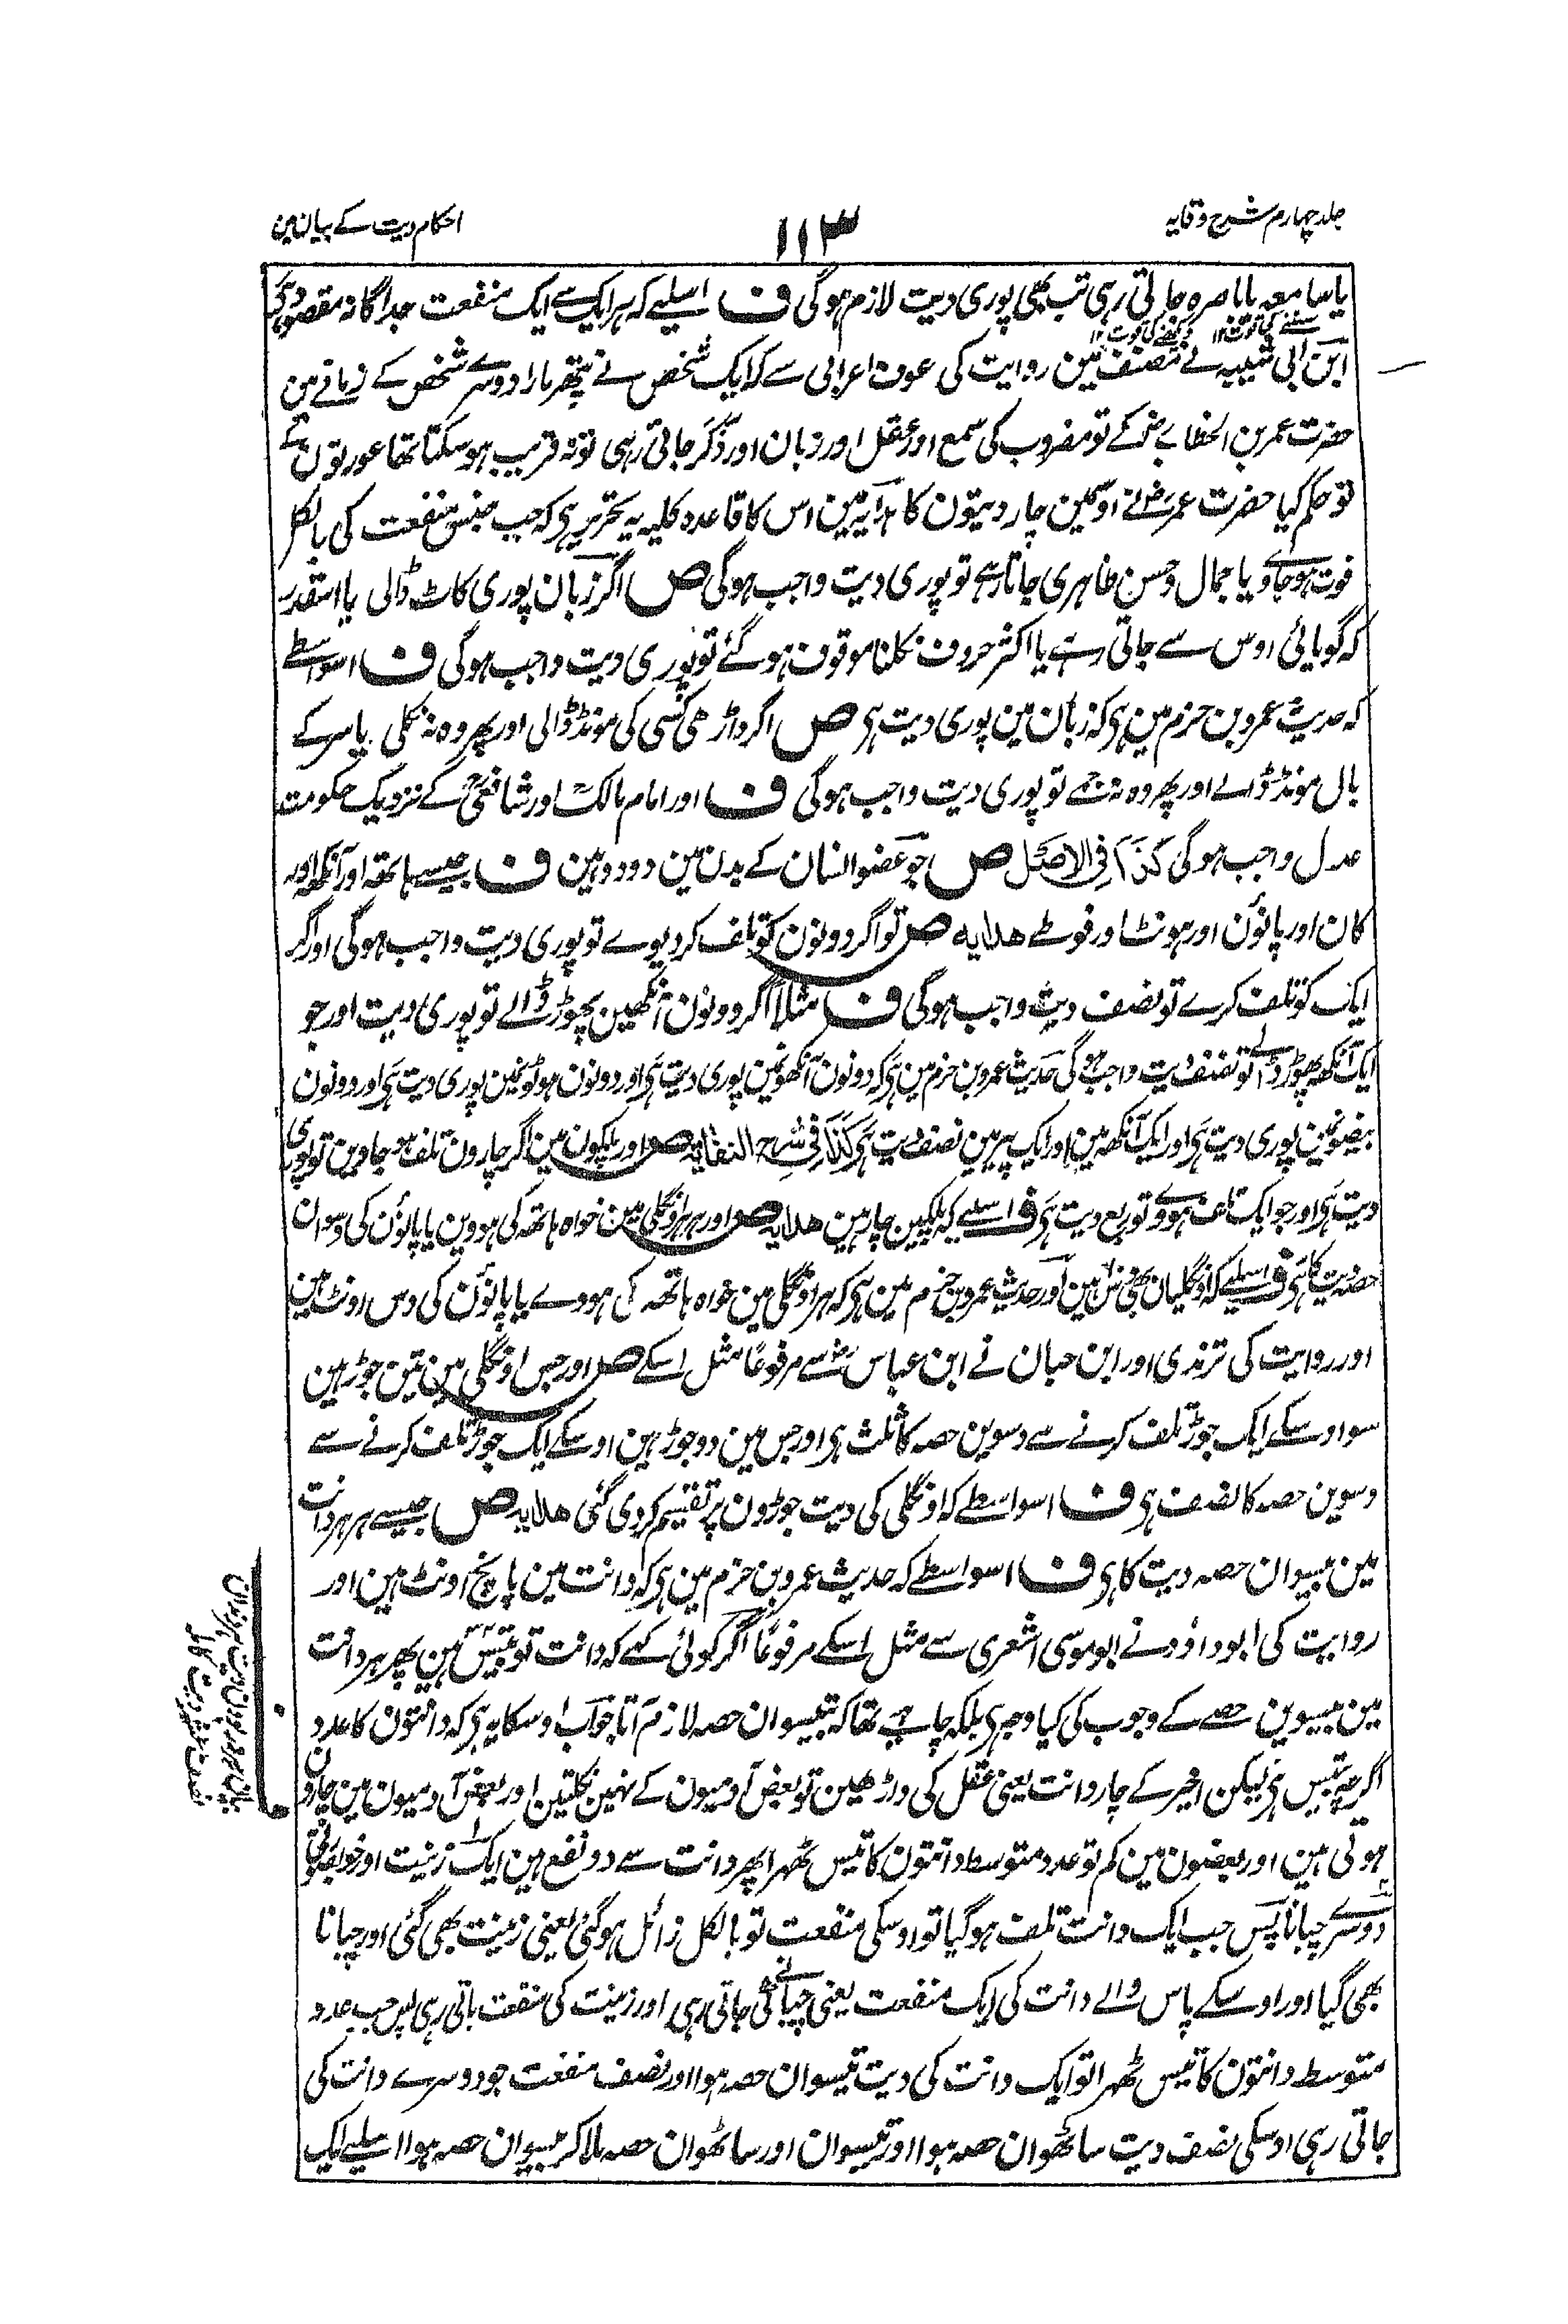 جلد چہارم شرح وقایہ
۱۱۳
احکام دیت کے بیان مین
یا سامعہ یا باصرہ جاتی رہی تب بھی پوری دیت لازم ہوگی ف اسلیے کہ ہر ایک سے ایک منفعت جداگانہ مقصود ہے
سننے کی قوت ۱۲ دیکھنے کی قوت ۱۲
ابن ابی شیبہ نے مصنف مین روایت کی عوف اعرابی سے کہ ایک شخص نے پتھر مارا دوسرے شخص کے زمانے مین
حضرت عمر بن الخطاب رض کے تو مضروب کی سمع اور عقل اور زبان اور ذکر جاتی رہی تو نہ قریب ہو سکتا تھا عورتون کے
تو حکم کیا حضرت عمر رض نے اوسمین چار دیتون کا ہدایہ مین اس کا قاعدہ کلیہ یہ تحریر ہی کہ جب جنس منفعت کی بالکل
فوت ہو جاوے یا جمال و حسن ظاہری جاتا رہے تو پوری دیت واجب ہوگی ص اگر زبان پوری کاٹ ڈالی یا اسقدر
کہ گویائی اوس سے جاتی رہے یا اکثر حروف نکلنا موقوف ہو گئے تو پوری دیت واجب ہوگی ف اسواسطے
کہ حدیث عمرو بن حزم مین ہی کہ زبان مین پوری دیت ہی ص اگر داڑھی کسی کی مونڈ ڈالی اور پھر وہ نہ نکلی یا سر کے
بال مونڈ ڈالے اور پھر وہ نہ جمے تو پوری دیت واجب ہوگی ف اور امام مالکؒ اور شافعیؒ کے نزدیک حکومت
عدل واجب ہوگی کذا فی الاصل ص جو عضو انسان کے بدن مین دو دو ہین ف جیسے ہاتھ اور آنکھ اور
کان اور پانوُن اور ہونٹ اور فوطے ھدایہ ص تو اگر دونون کو تلف کر دیوے تو پوری دیت واجب ہوگی اور اگر
ایک کو تلف کرے تو نصف دیت واجب ہوگی ف مثلاً اگر دونون آنکھین پھوڑ ڈالے تو پوری دیت اور جو
ایک آنکھ پھوڑ ڈالے تو نصف دیت واجب ہوگی حدیث عمرو بن حزم مین ہی کہ دونون آنکھونمین پوری دیت ہی اور دونون ہونٹونمین پوری دیت ہی اور دونون
بیضونمین پوری دیت ہی اور ایک آنکھ مین اور ایک پیر مین نصف دیت ہی کذا فی شرح النقایہ ص اور پلکون مین اگر چارون تلف ہو جاوین تو پوری
دیت ہی اور جو ایک تلف ہووے تو ربع دیت ہی ف اسلیے کہ پلکین چار ہین ھدایہ ص اور ہر ہر اونگلی مین خواہ ہاتھ کی ہووین یا پانوُن کی دسوان
حصہ دیت کا ہی ف اسلیے کہ اونگلیان بھی دس ہین اور حدیث عمرو بن حزم مین ہی کہ ہر اونگلی مین خواہ ہاتھ کی ہووے یا پانوُن کی دس اونٹ ہین
اور روایت کی ترمذی اور ابن حبان نے ابن عباس رض سے مرفوعًا مثل اسکے ص اور جس اونگلی مین تین جوڑ ہین
سو اوسکے ایک جوڑ تلف کرنے سے دسوین حصہ کا ثلث ہی اور جس مین دو جوڑ ہین اوسکے ایک جوڑ تلف کرنے سے
دسوین حصہ کا نصف ہی ف اسواسطے کہ اونگلی کی دیت جوڑون پر تقسیم کر دی گئی ھدایہ ص جیسے ہر ہر دانت
مین بیسوان حصہ دیت کا ہی ف اسواسطے کہ حدیث عمرو بن حزم مین ہی کہ دانت مین پانچ اونٹ ہین اور
روایت کی ابوداؤد نے ابو موسی اشعری سے مثل اسکے مرفوعًا اگر کوئی کہے کہ دانت تو بتیس ہین پھر ہر دانت
مین بیسوین حصے کے وجوب کی کیا وجہ ہی بلکہ چاہیے تھا کہ بتیسوان حصہ لازم آتا جواب اوسکا یہ ہی کہ دانتون کا عدد
اگرچہ بتیس ہی لیکن اخیر کے چار دانت یعنی عقل کی داڑھین تو بعض آدمیون کے نہین نکلتین اور بعض آدمیون مین چارون
ہوتی ہین اور بعضون مین کم تو عدد متوسط دانتون کا تیس ٹھہرا پھر دانت سے دو نفع ہین ایک زینت اور خوبصورتی
دوسرے چبانا پس جب ایک دانت تلف ہو گیا تو اوسکی منفعت تو بالکل زائل ہوگئی یعنی زینت بھی گئی اور چبانا
بھی گیا اور اوسکے پاس والے دانت کی ایک منفعت یعنی چبانے کی جاتی رہی اور زینت کی منفعت باقی رہی پس جب عدد
متوسط دانتون کا تیس ٹھہرا تو ایک دانت کی دیت تیسوان حصہ ہوا اور نصف منفعت جو دوسرے دانت کی
جاتی رہی اوسکی نصف دیت ساٹھوان حصہ ہوا اور تیسوان اور ساٹھوان حصہ ملا کر بیسوان حصہ ہوا اسلیے ایک